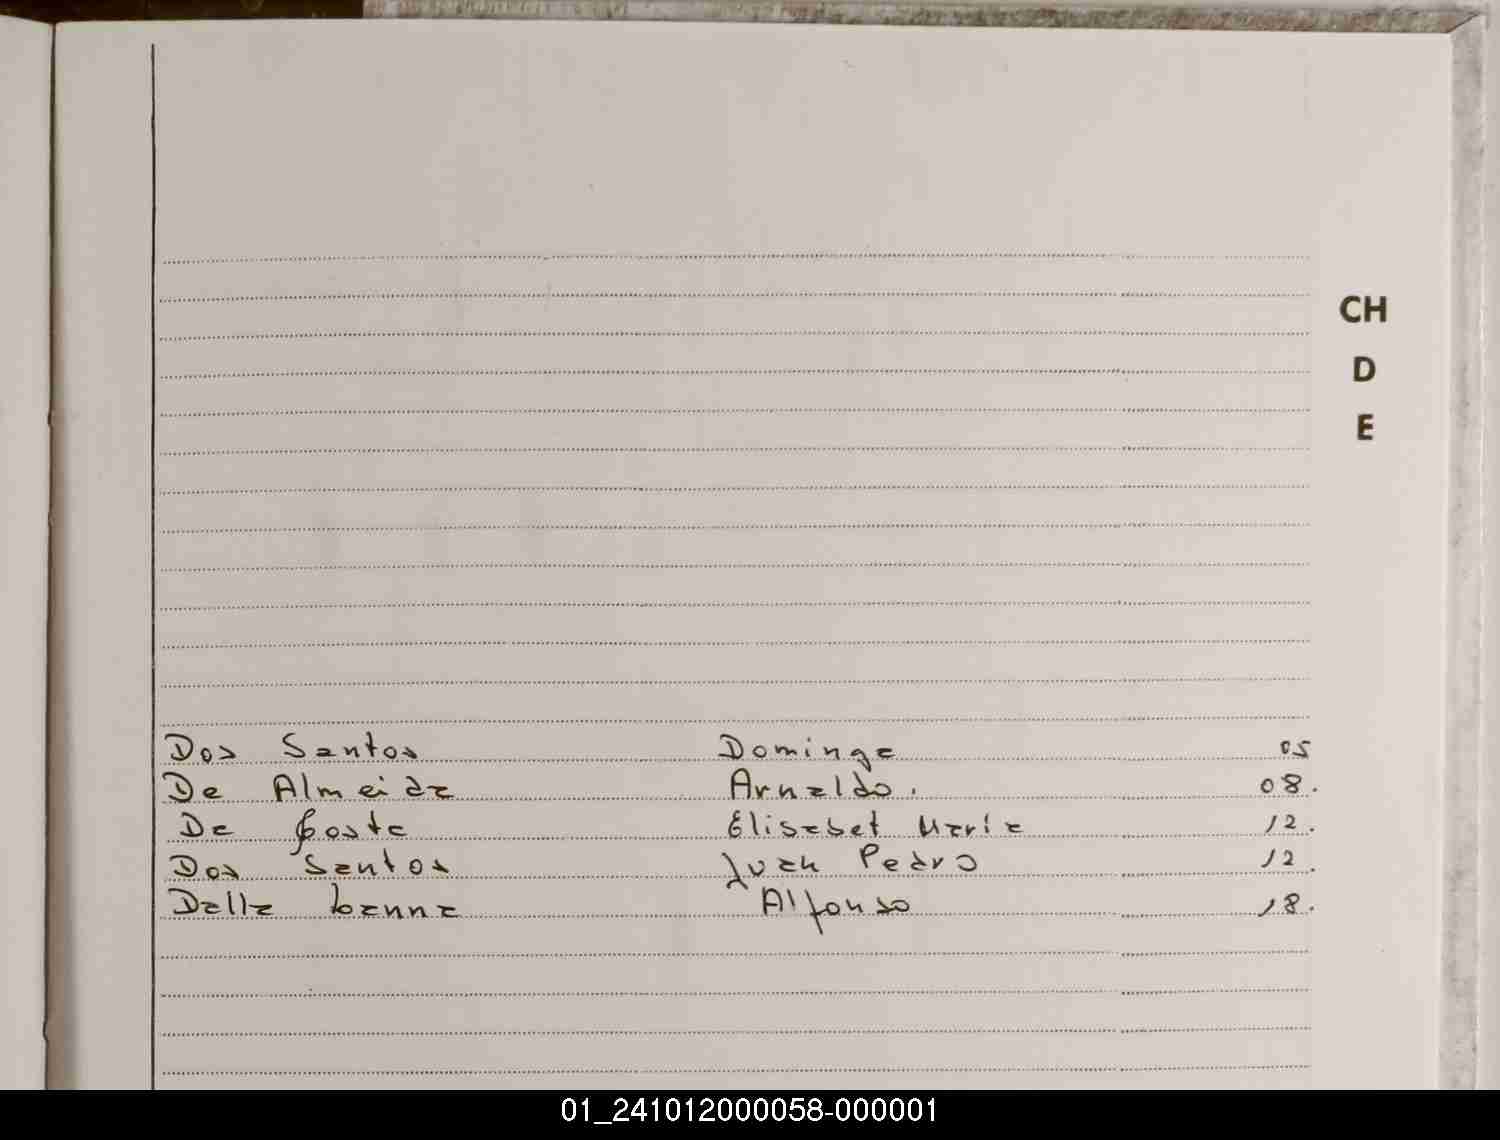 CH
D
E
Dos Santos Dominga 05
De Almeida Arnaldo. 08.
Da Costa Elisabet Maria 12.
Dos Santos Juan Pedro 12.
Della Alfonso 18.
01_241012000058-000001